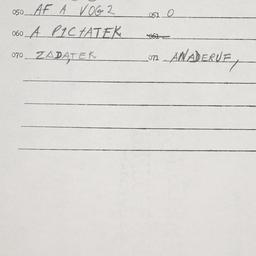 050 AF A VOG2 051 0
060 A PICTATEK 061
070 ZADATEK 071 ANADERUF,